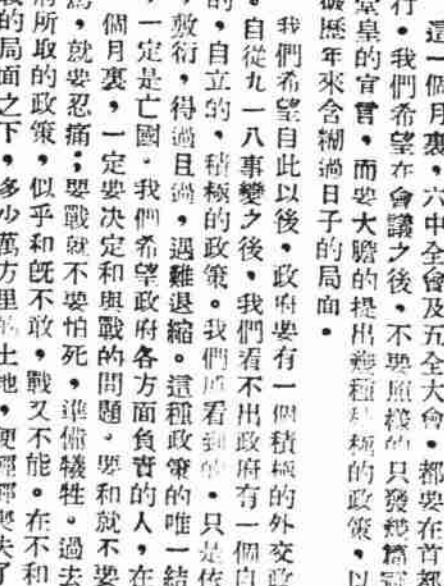 這一個月裏，六中全會及五全大會，都要在首都
行。我們希望在會議之後，不要照樣的只發幾篇冠
堂皇的宣言，而要大膽的提出幾種積極的政策，以
破歷年來含糊過日子的局面。
我們希望自此以後，政府要有一個積極的外交政
。自從九一八事變之後，我們看不出政府有一個自
的，自立的，積極的政策。我們所看到的，只是依
，敷衍，得過且過，遇難退縮。這種政策的唯一結
，一定是亡國。我們希望政府各方面負責的人，在
個月裏，一定要決定和與戰的問題。要和就不要
罵，就要忍痛；要戰就不要怕死，準備犧牲。過去
府所取的政策，似乎和既不敢，戰又不能。在不和
戰的局面之下，多少萬方里的土地，便輕輕喪失了